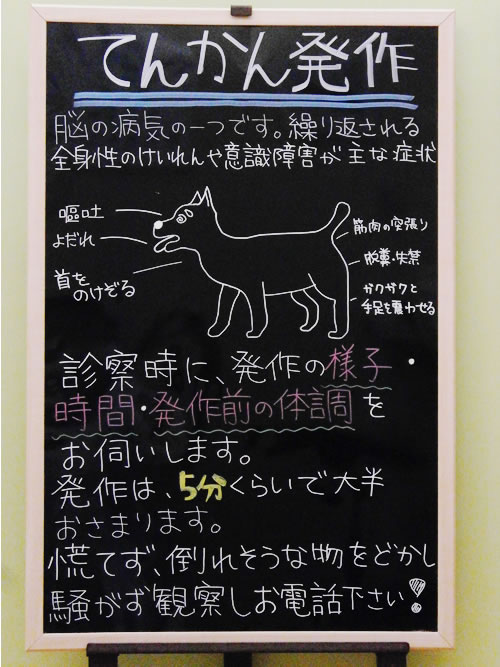 てんかん発作
脳の病気の一つです。繰り返される
全身性のけいれんや意識障害が主な症状
嘔吐
よだれ
首を
のけぞる
筋肉の突張り
脱糞・失禁
ガクガクと
手足を震わせる
診察時に、発作の様子・
時間・発作前の体調を
お伺いします。
発作は、5分くらいで大半
おさまります。
慌てず、倒れそうな物をどかし
騒がず観察しお電話下さい!